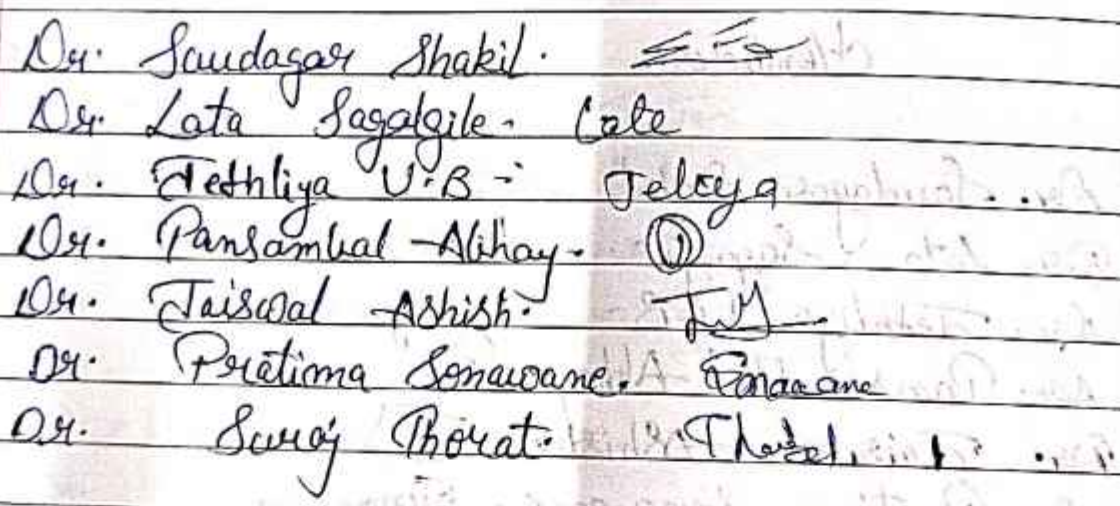 Dr. Saudagar Shakil.
Dr. Lata Sagalgile. Late
Dr. Jethliya U.B - Jeltya
Dr. Pansambal Abhay.
Dr. Jaiswal Ashish.
Dr. Pratima Sonawane. Sonawane
Dr. Suraj Thorat. Thorat